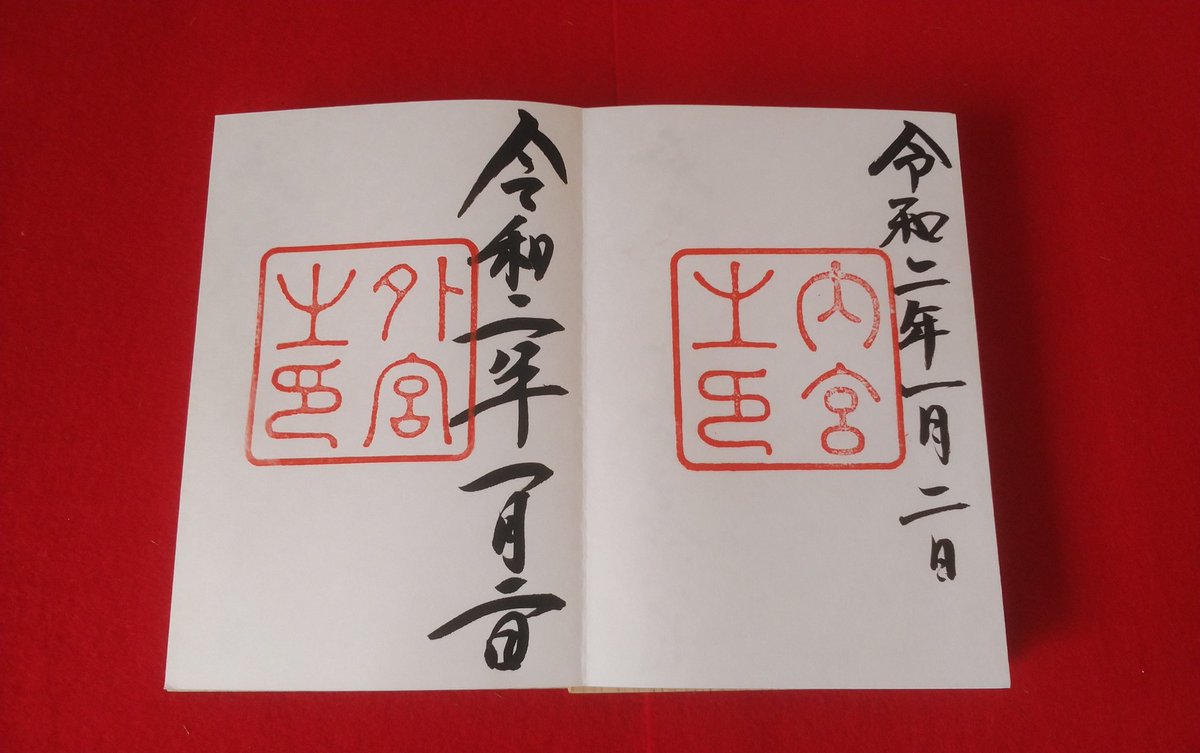 令和二年一月二日
内宮
之印
令和二年一月二日
外宮
之印